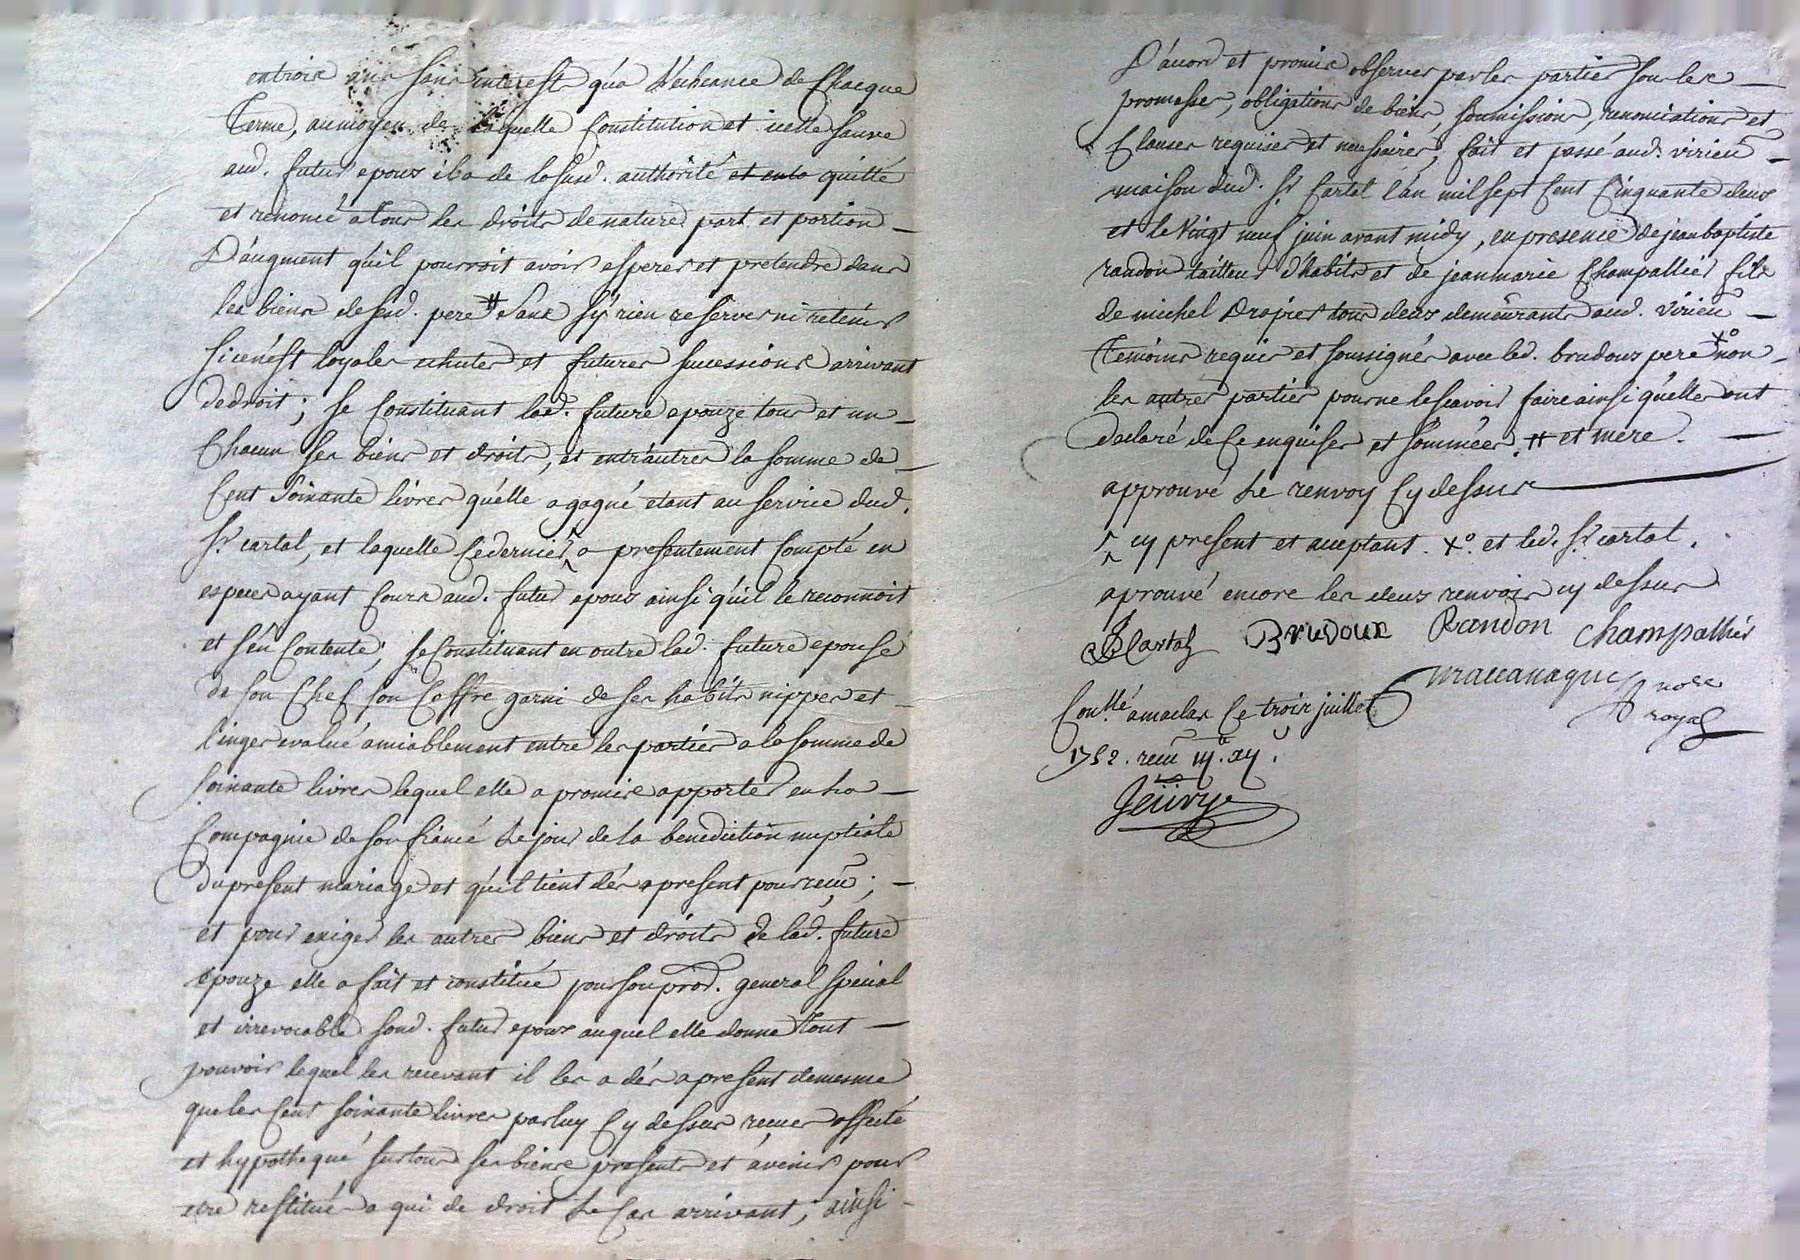 entrois ans sans interest qu'a l'écheance de Chacque
Terme, au moyen de laquelle Constitution et icelle sauve
aud. futur epoux il a de lasusd. authorité et en la quitté
et renoncé a tous les droits de nature part et portion
D'augment qu'il pourroit avoir esperer et pretendre dans
les biens desesd. pere # Sans s'y rien reserver ni retenir
sicenést loyales echutes et futures sucessions arrivant
dedroit ; se Constituant lad. future epouze tous et un
Chacun ses biens et droits, et entr'autres la somme de
Cent soixante livres qu'elle a gagné etant au service dud.
Sr. cartal, et laquelle Cedernier ^ a presentement Compté en
especes ayant Cours aud. futur epoux ainsi qu'il le reconnoit
et s'en Contente, se Constituant en outre lad. future epouse
de son Chef son Coffre garni de ses habits nippes et
linges evalué amiablement entre les parties a la somme de
soixante livres lequel elle a promis apporter en la
Compagnie de son fiancé le jour de la benediction nuptiale
du present mariage et qu'il tient dés a present pour reçu ;
et pour exiger les autres biens et droits de lad. future
epouze elle a fait et constitué pour son prod. general special
et irrevocable sond. futur epoux auquel elle donne tout
pouvoir lequel les recevant il les a dés a present demesme
que les Cent soixante livres par luy Cy dessus recues affecté
et hypothequé sur tous ses biens presents et àvenir pour
etre restitué a qui de droit le Cas arrivant ; ainsi
D'acord et promis observer par les parties sous les
promesses, obligations de biens, soumissions, renonciations et
Clauses requises et necessaires, fait et passé aud. virieu
maison dud. Sr. Cartal l'an mil sept Cent Cinquante deux
et le Vingt neuf juin avant midy, en presence de jean baptiste
randon tailleur d'habits et de jean marie Champallier fils
de michel Drapier tous deux demeurants aud. Virieu
Temoins requis et soussignés avec led. brudoux pere x° non
les autres parties pour ne lescavoir faire ainsi qu'elles ont
declaré de Ce enquises et sommées. # et mere.
approuvé le renvoy Cy dessus
^ cy present et acceptant. x° et led. Sr. cartal.
aprouvé encore les deux renvois cy dessus
Cartal Brudoux Randon Champallier
Maccanague
nore
royal
Conllé amaclas Ce trois juillet
1752. reçu